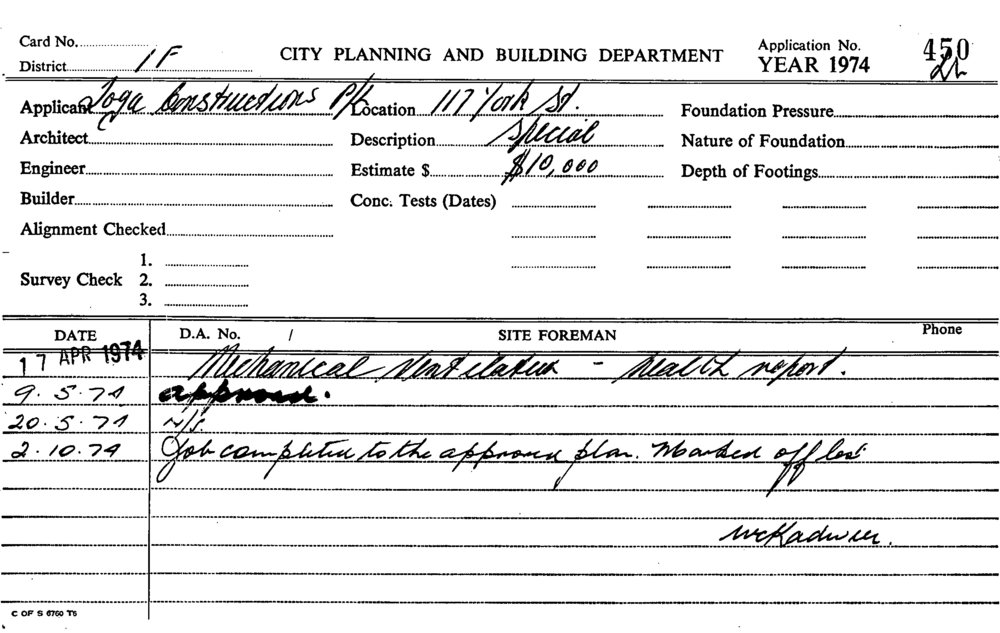 Card No.
District 1F
CITY PLANNING AND BUILDING DEPARTMENT
Application No. 450
YEAR 1974
Applicant Toga Constructions P/L
Location 117 York St.
Foundation Pressure
Architect
Description Special
Nature of Foundation
Engineer
Estimate $ $10,000
Depth of Footings
Builder
Conc. Tests (Dates)
Alignment Checked
Survey Check 1.
2.
3.
DATE D.A. No. / SITE FOREMAN Phone
17 APR 1974 Mechanical Ventilation - health report.
9.5.74 approved.
20.5.74 N/S
2.10.74 Job completed to the approved plan. Marked off
C OF S 6760 T6